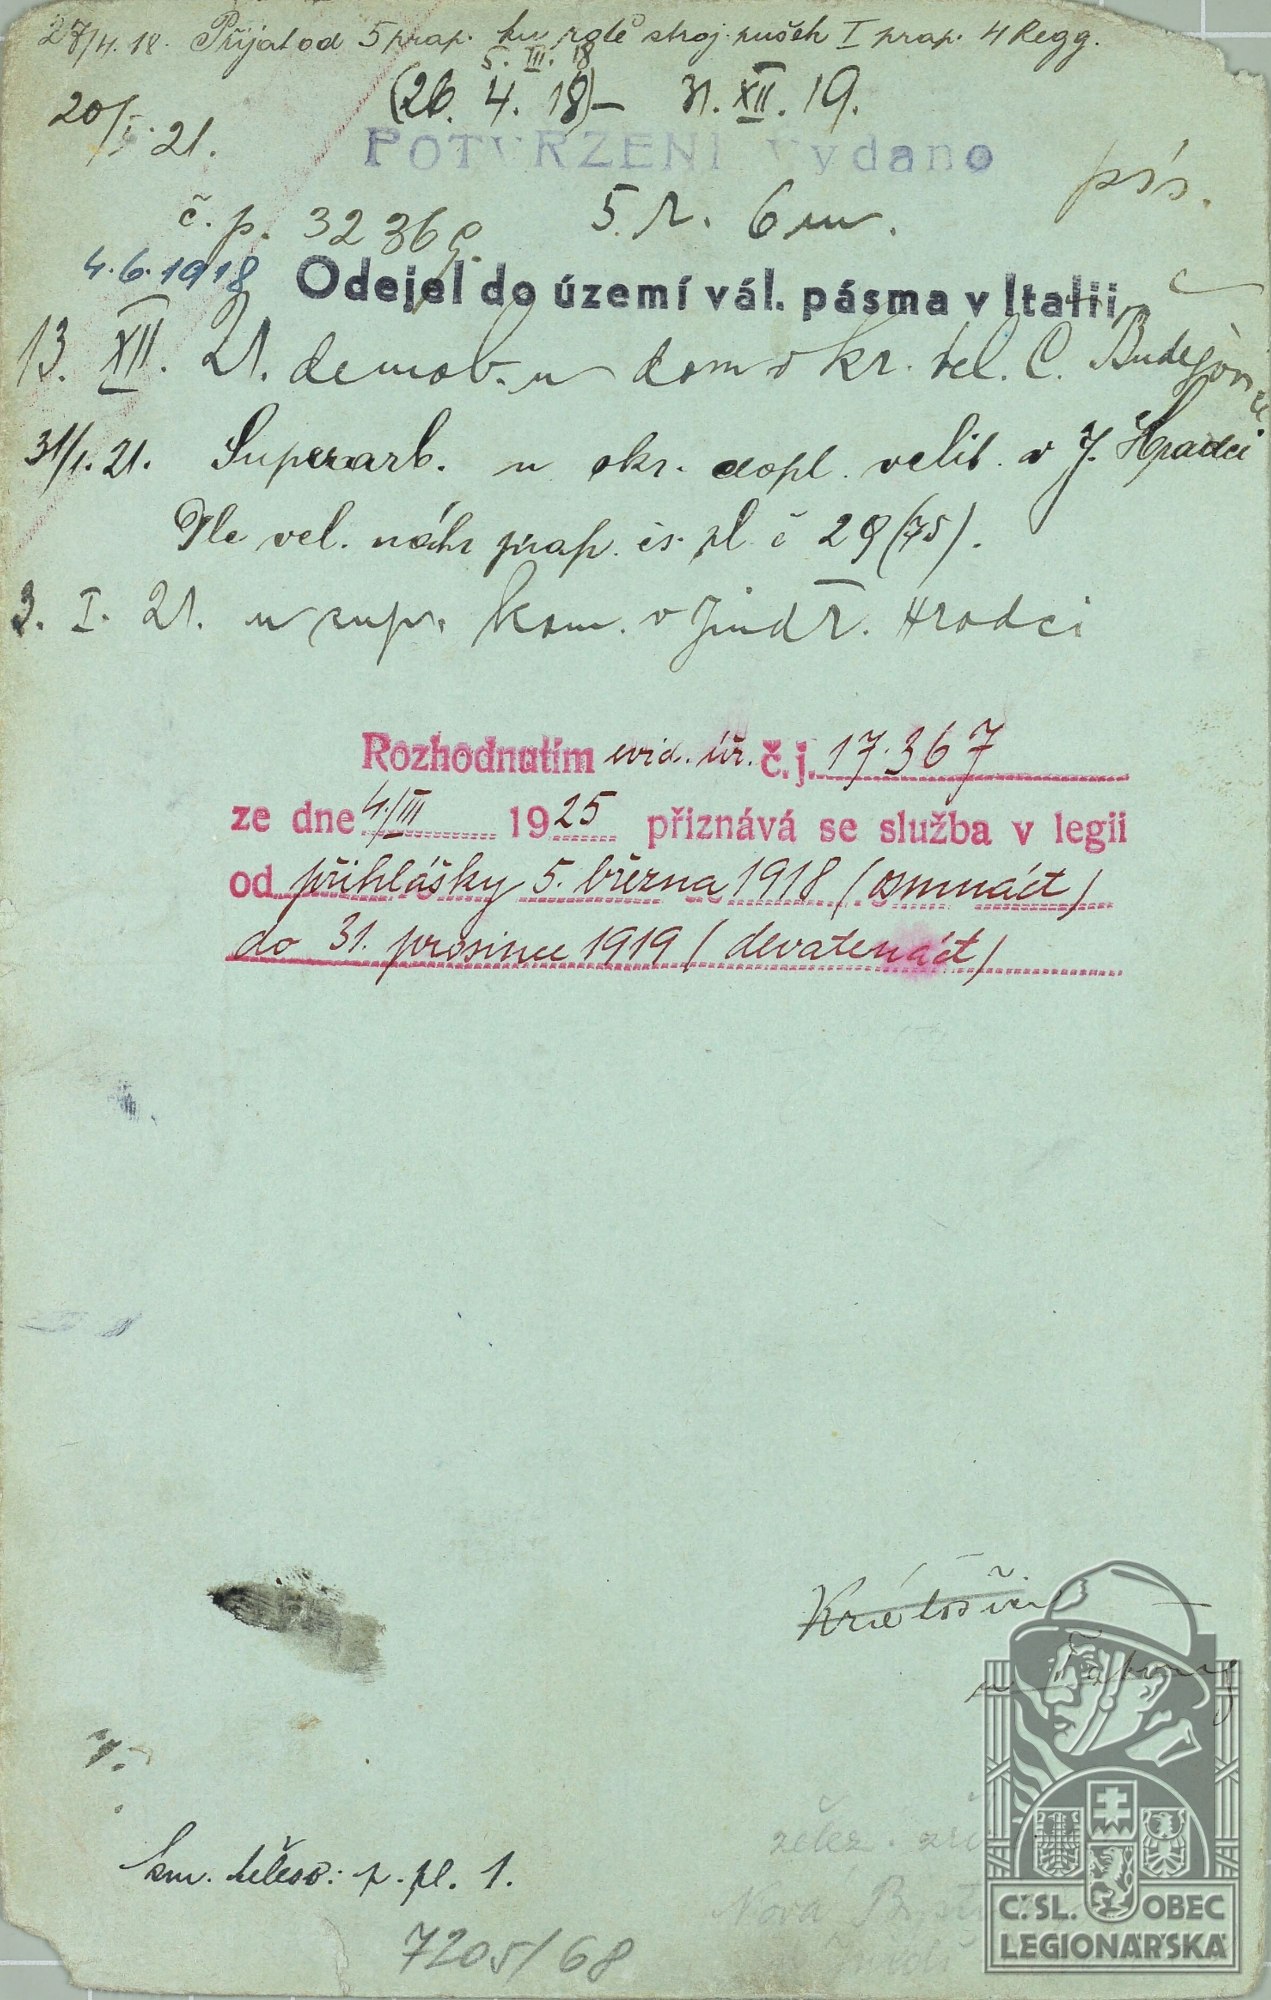 27/4.18. Přijat od 5 prap. ku rotě stroj. pušek I prap. 4 Regg.
5. III. 18
(26. 4. 18) – 31. XII. 19.
20/I. 21.
POTVRZENÍ vydano
pís.
č. p. 3236 5. r. 6 m.
4.6.1918 Odejel do území vál. pásma v Italii
13. XII. 21. demob. u dom okr. vel. Č. Budějovice
31/1. 21. Superarb. u okr. dopl. velit. v J. Hradci
Dle vel. náhr prap. čs. pl. č 29 (75).
3. I. 21. u sup. kom. v Jindř. Hradci
Rozhodnutím evid. úř. č. j. 17.367
ze dne 4./III 1925 přiznává se služba v legii
od přihlášky 5. března 1918 (osmnáct)
do 31. prosince 1919 (devatenáct)
km. těleso: p. pl. 1.
želez.
Nova
7205/68
Č.SL. OBEC
LEGIONÁŘSKÁ